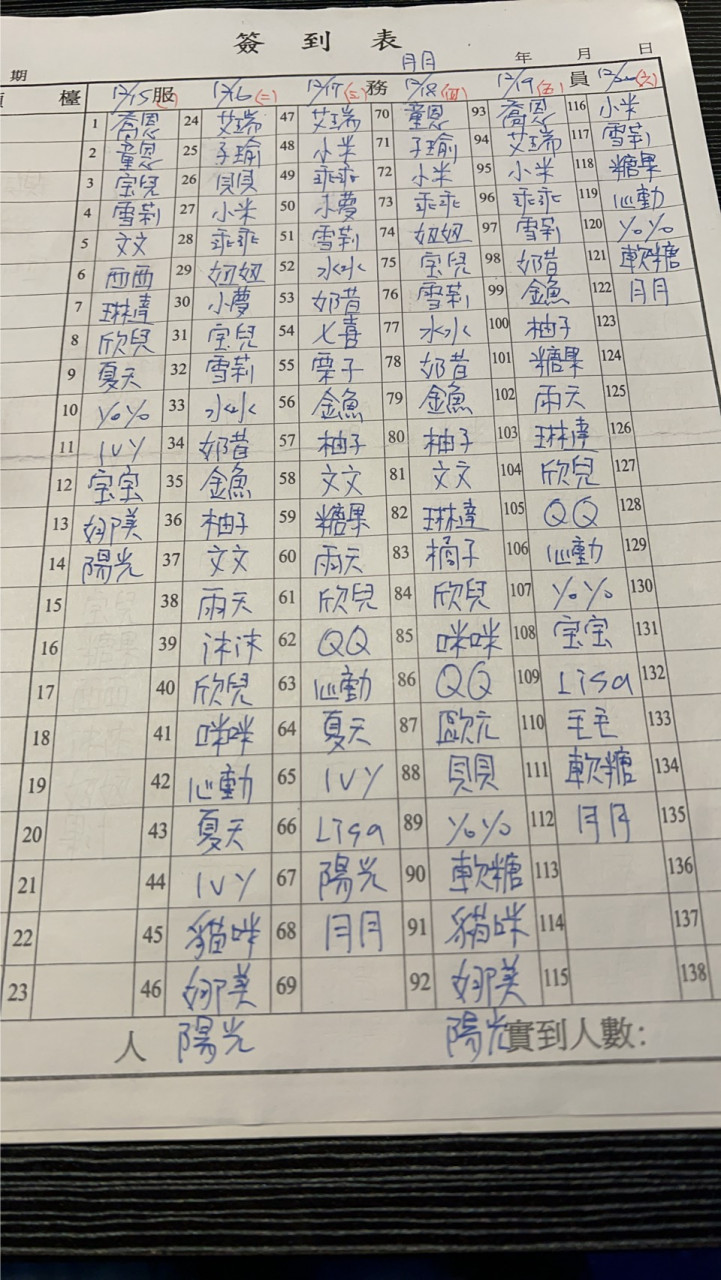 簽到表
期 月月 年 月 日
檯 服 務 員
12/15(一) 12/16(二) 12/17(三) 12/18(四) 12/19(五) 12/20(六)
1 喬恩 24 艾瑞 47 艾瑞 70 童恩 93 喬恩 116 小米
2 童恩 25 子瑜 48 小米 71 子瑜 94 艾瑞 117 雪莉
3 宝兒 26 貝貝 49 乖乖 72 小米 95 小米 118 糖果
4 雪莉 27 小米 50 小夢 73 乖乖 96 乖乖 119 心動
5 文文 28 乖乖 51 雪莉 74 妞妞 97 雪莉 120 YoYo
6 西西 29 妞妞 52 水水 75 宝兒 98 奶昔 121 軟糖
7 琳達 30 小夢 53 奶昔 76 雪莉 99 金魚 122 月月
8 欣兒 31 宝兒 54 七喜 77 水水 100 柚子 123
9 夏天 32 雪莉 55 栗子 78 奶昔 101 糖果 124
10 YoYo 33 水水 56 金魚 79 金魚 102 雨天 125
11 IVY 34 奶昔 57 柚子 80 柚子 103 琳達 126
12 宝宝 35 金魚 58 文文 81 文文 104 欣兒 127
13 娜美 36 柚子 59 糖果 82 琳達 105 QQ 128
14 陽光 37 文文 60 雨天 83 橘子 106 心動 129
15 38 雨天 61 欣兒 84 欣兒 107 YoYo 130
16 39 沫沫 62 QQ 85 咪咪 108 宝宝 131
17 40 欣兒 63 心動 86 QQ 109 Lisa 132
18 41 咪咪 64 夏天 87 歐元 110 毛毛 133
19 42 心動 65 IVY 88 貝貝 111 軟糖 134
20 43 夏天 66 Lisa 89 YoYo 112 月月 135
21 44 IVY 67 陽光 90 軟糖 113 136
22 45 貓咪 68 月月 91 貓咪 114 137
23 46 娜美 69 92 娜美 115 138
人 陽光 陽光 實到人數: